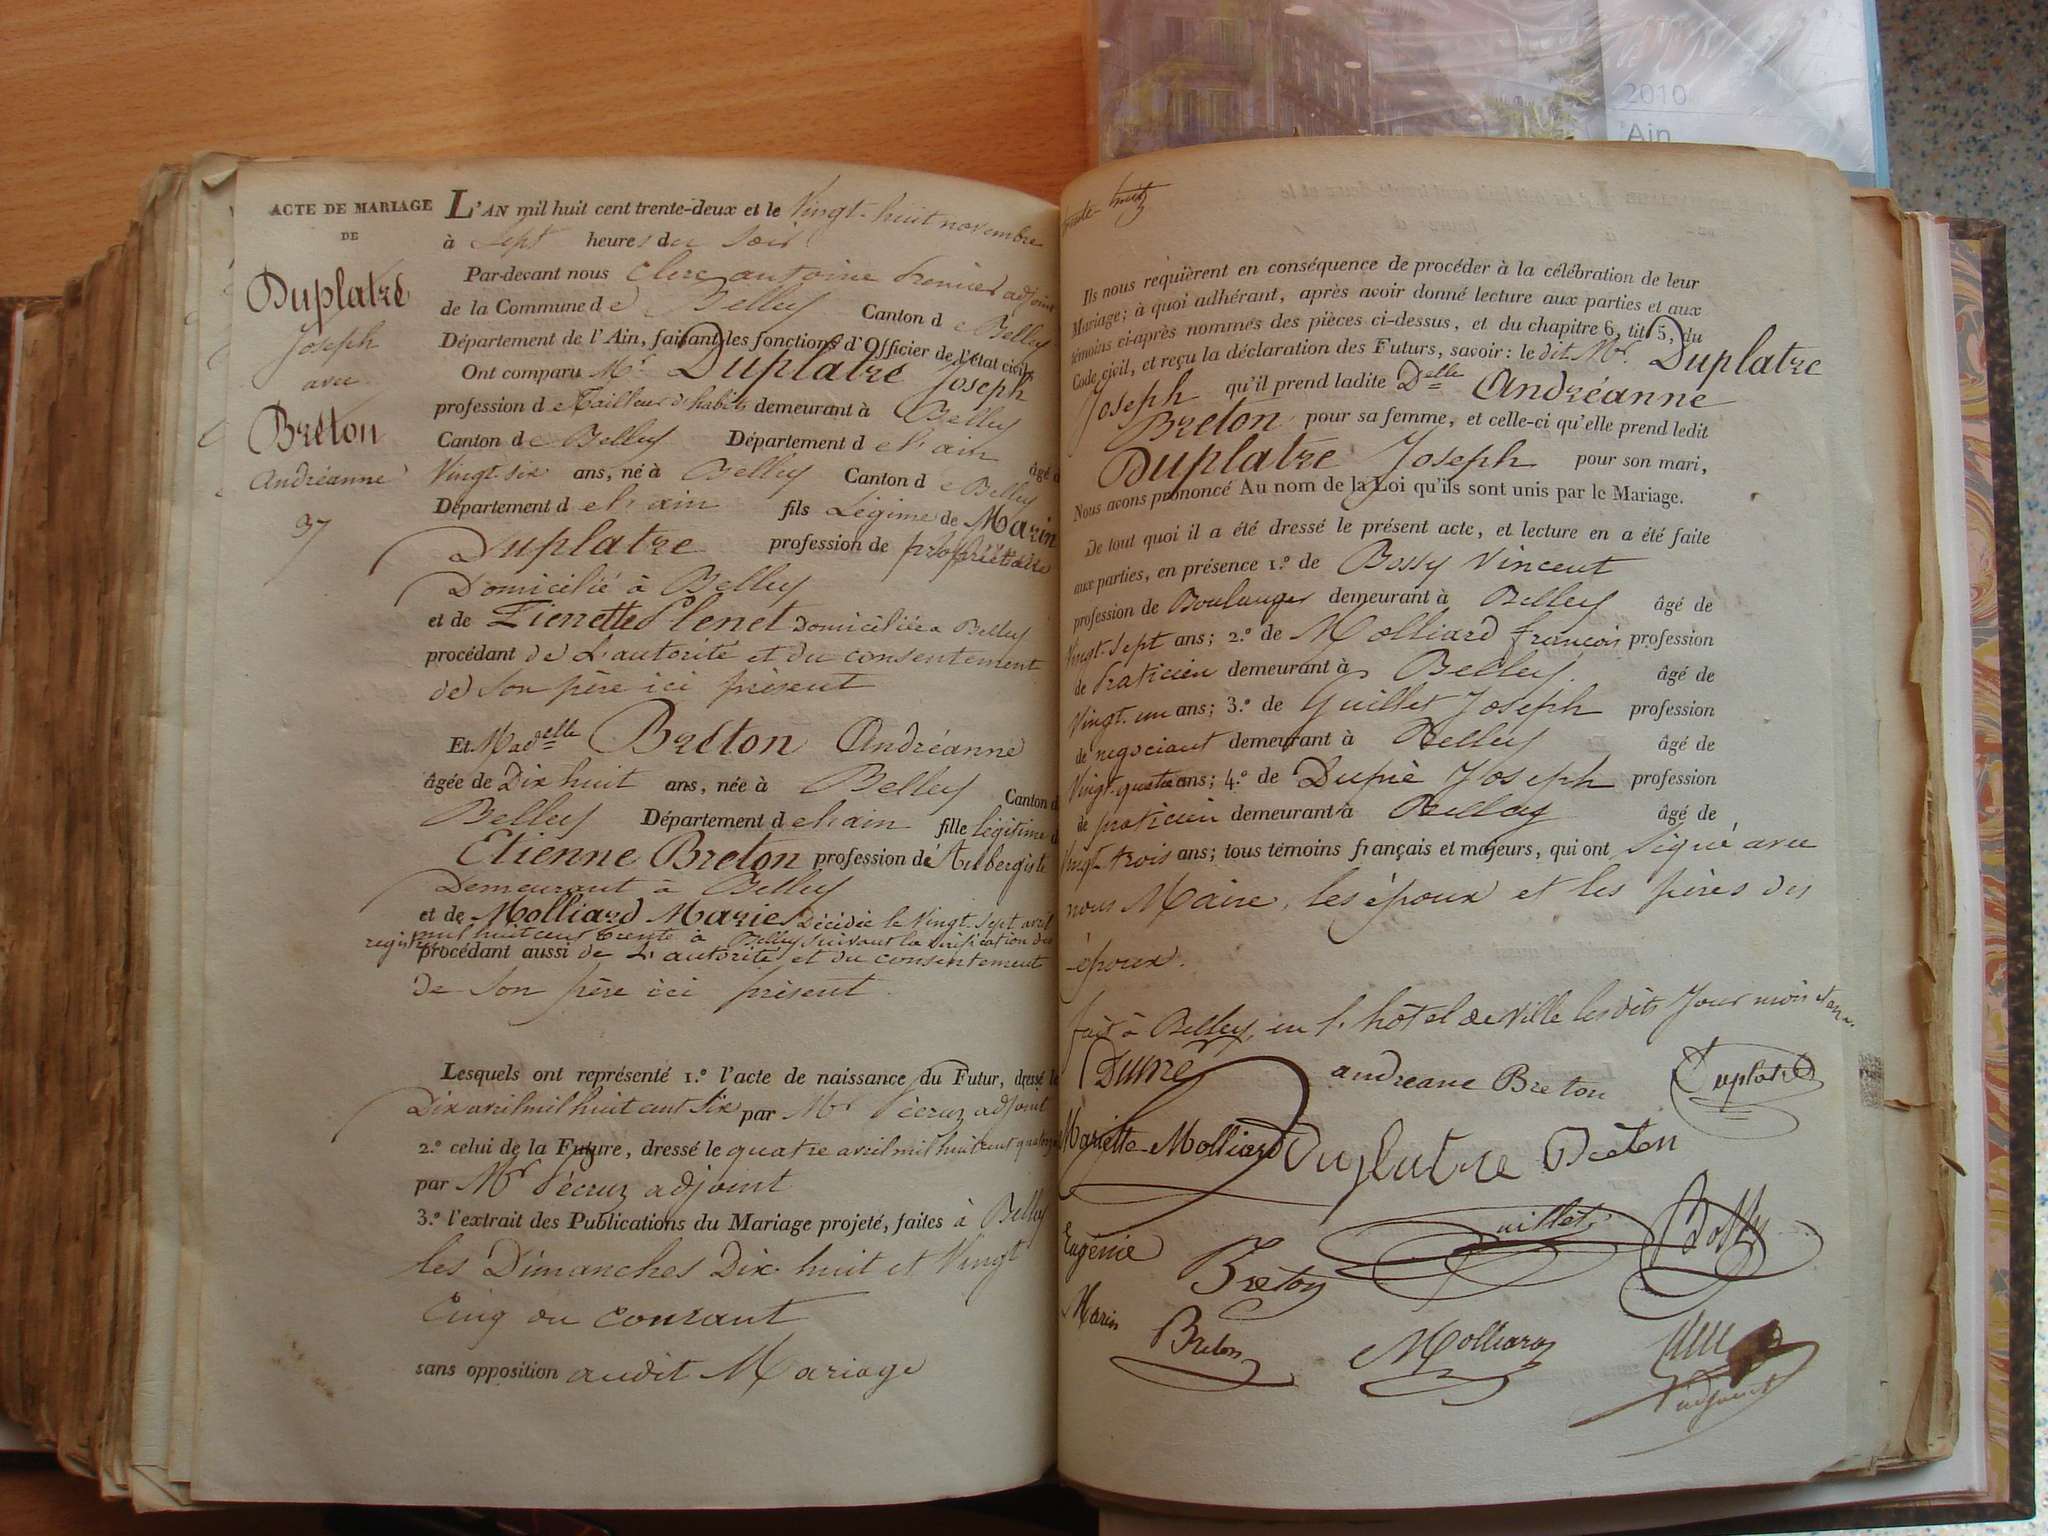 2010
Ain
ACTE DE MARIAGE
DE
Duplatre
Joseph
avec
Breton
Andréanne
37
L'AN mil huit cent trente-deux et le Vingt-huit novembre
à Sept heures du Soir
Par-devant nous Clerc antoine Premier adjoint
de la Commune de Belley Canton de Belley
Département de l'Ain, faisant les fonctions d'Officier de l'état civil,
Ont comparu Mr Duplatre Joseph
profession de Tailleur d'habits demeurant à Belley
Canton de Belley Département de l'ain âgé de
Vingt-six ans, né à Belley Canton de Belley
Département de l'ain fils Légime de Marin
Duplatre profession de propriétaire
Domicilié à Belley
et de Pierrette Clenet Domiciliée a Belley
procédant de L'autorité et du consentement
de Son père ici présent
Et Madelle Breton Andréanne
âgée de Dix huit ans, née à Belley Canton d
Belley Département de l'ain fille légitime d
Etienne Breton profession de Aubergiste
Demeurant à Belley
et de Molliard Marie Décédée le Vingt-Sept avril
mil huit cent trente à Belley suivant la vérification des
registres
procédant aussi de L'autorité et du consentement
de Son père ici présent.
Lesquels ont représenté 1.º l'acte de naissance du Futur, dressé le
Dix avril mil huit cent Six par Mr Pécruz adjoint
2.º celui de la Future, dressé le quatre avril mil huit cent quatorze
par Mr Pécruz adjoint
3.º l'extrait des Publications du Mariage projeté, faites à Belley
les Dimanches Dix-huit et Vingt
Cinq du courant
sans opposition audit Mariage
trente-huit
Ils nous requièrent en conséquence de procéder à la célébration de leur
Mariage; à quoi adhérant, après avoir donné lecture aux parties et aux
témoins ci-après nommés des pièces ci-dessus, et du chapitre 6, tit. 5, du
Code civil, et reçu la déclaration des Futurs, savoir: le dit Mr. Duplatre
Joseph qu'il prend ladite Delle Andréanne
Breton pour sa femme, et celle-ci qu'elle prend ledit
Duplatre Joseph pour son mari,
Nous avons prononcé Au nom de la Loi qu'ils sont unis par le Mariage.
De tout quoi il a été dressé le présent acte, et lecture en a été faite
aux parties, en présence 1.º de Bossy Vincent
profession de Boulanger demeurant à Belley âgé de
Vingt-sept ans; 2.º de Molliard françois profession
de Praticien demeurant à Belley. âgé de
Vingt-un ans; 3.º de Guillet Joseph profession
de negociant demeurant à Belley âgé de
Vingt-quatre ans; 4.º de Dupré Joseph profession
de praticien demeurant à Belley âgé de
Vingt-trois ans; tous témoins français et majeurs, qui ont Signé avec
nous Maire, les époux et les pères des
époux.
fait à Belley, en l'hôtel de Ville les dits Jour mois et an.
andreane Breton Duplatre
Mariette Molliard Duplatre Breton
Eugénie Breton Guillet Bossy
Marin Breton Molliard
adjoint